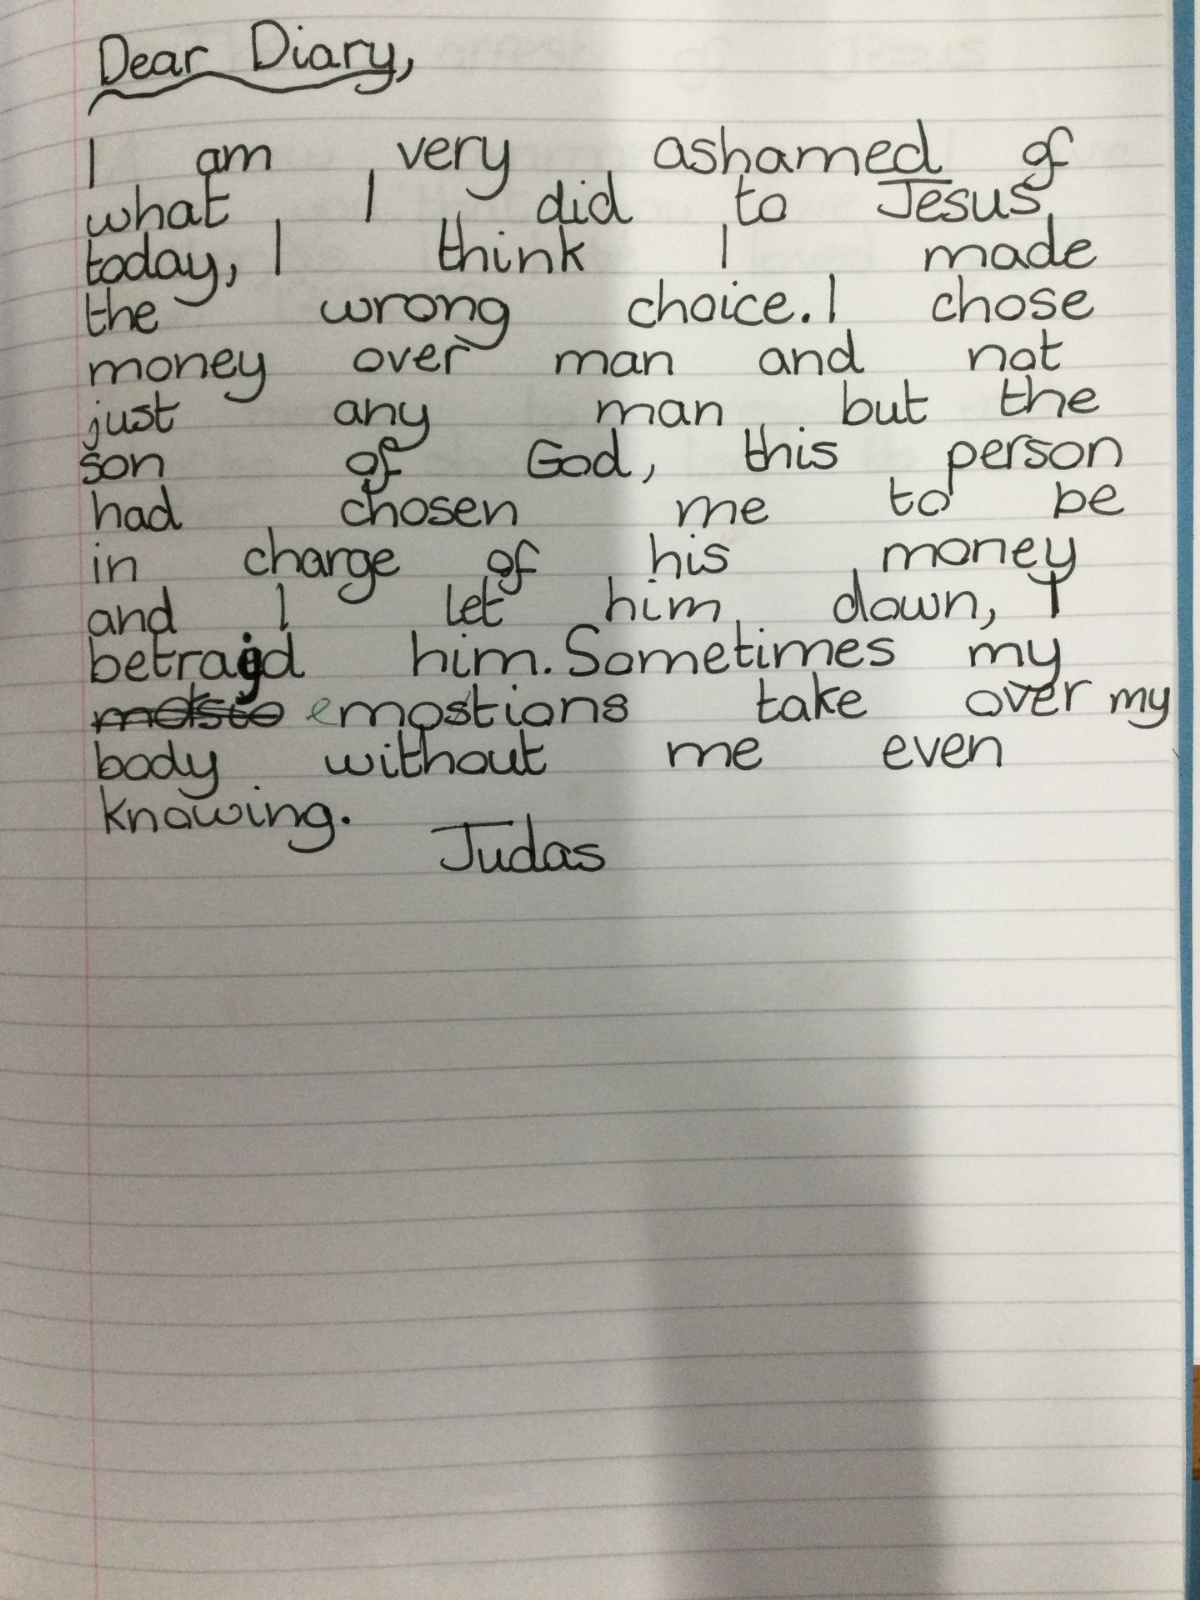 Dear Diary,
I am very ashamed of
what I did to Jesus
today, I think I made
the wrong choice. I chose
money over man and not
just any man but the
son of God, this person
had chosen me to be
in charge of his money
and I let him down, I
betraid him. Sometimes my
emostions take over my
body without me even
knowing.
Judas